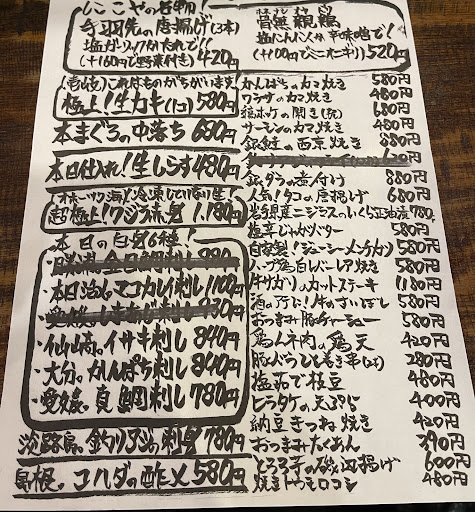 にこやの名物!
手羽先の唐揚げ(3本)
420円
骨無親鶏
塩にんにく 辛味噌で!
520円
これはものがちがいます!
極上!生カキ(1コ) 580円
本まぐろの中落ち 680円
本日仕入れ!生しらす 480円
超極上!クジラ 1,180円
本日の白身6種!
金目鯛刺し
・本日活〆マコカレイ刺し 1100円
・仙崎。イサキ刺し 840円
・大分。かんぱち刺し 840円
・愛媛。真鯛刺し 780円
淡路島。釣りアジの刺身 780円
島根。コハダの酢〆 580円
かんぱちのカマ焼き 580円
ワラサのカマ焼き 480円
縞ホッケの開き(完) 680円
サーモンのカマ焼き 480円
銀鮭の西京焼き 580円
銀ダラの煮付け 880円
人気!タコの唐揚げ 680円
岩手県産ニジマスのいくら正油漬 780円
塩辛じゃがバター 580円
自家製!ジューシーメンチカツ 580円
580円
牛ハラミのカットステーキ 1180円
酒のアテに!牛のさいぼし 580円
おつまみ豚チャーシュー 580円
鶏ムネ肉の鶏天 420円
豚バラしそ巻き串 280円
塩茹で枝豆 480円
ヒラタケの天ぷら 400円
納豆きつね焼き 420円
おつまみたくあん 390円
とろろ芋の磯辺揚げ 600円
焼きトウモロコシ 480円